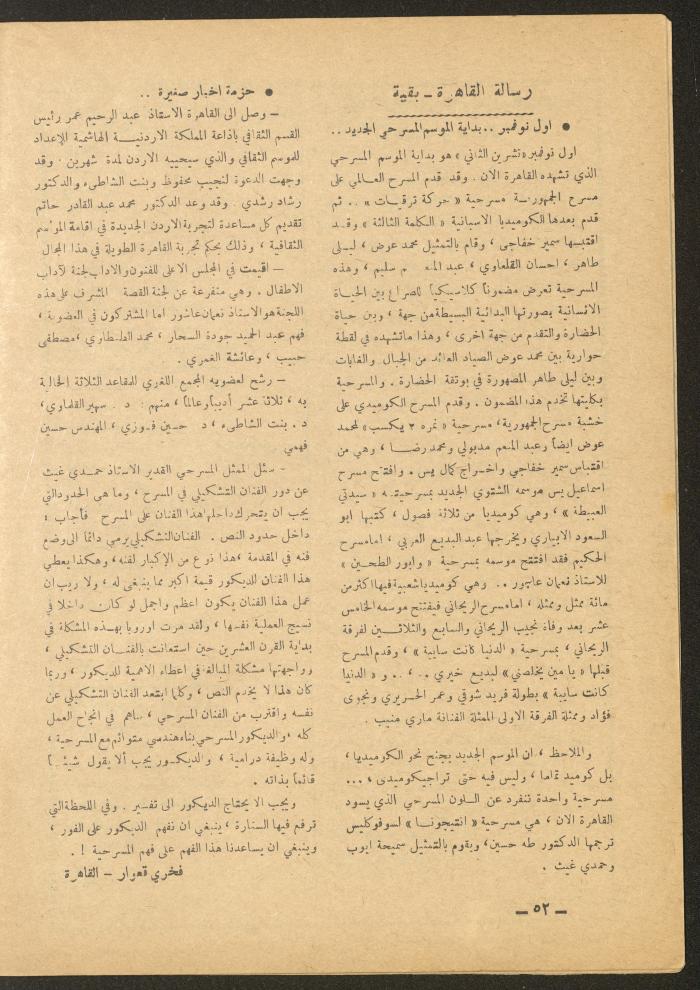 رسالة القاهرة ـ بقية
● اول نوفمبر .. بداية الموسم المسرحي الجديد ..
اول نوفمبر «تشرين الثاني» هو بداية الموسم المسرحي
الذي تشهده القاهرة الان . وقد قدم المسرح العالمي على
مسرح الجمهورية مسرحية « حركة ترقيات » .. ثم
قدم بعدها الكوميديا الاسبانية « الكلمة الثالثة » وقد
اقتبسها سمير خفاجي ، وقام بالتمثيل محمد عوض ، ليلى
طاهر ، احسان القلعاوي ، عبد المنعم سليم ، وهذه
المسرحية تعرض مضموناً كلاسيكياً للصراع بين الحياة
الانسانية بصورتها البدائية البسيطة من جهة ، وبين حياة
الحضارة والتقدم من جهة اخرى ، وهذا ما تشهده في لقطة
حوارية بين محمد عوض الصياد العائد من الجبال والغابات
وبين ليلى طاهر المصهورة في بوتقة الحضارة . والمسرحية
بكليتها تخدم هذا المضمون . وقدم المسرح الكوميدي على
خشبة مسرح الجمهورية، مسرحية « نمره ٢ يكسب » لمحمد
عوض ايضاً وعبد المنعم مدبولي ومحمد رضا ، وهي من
اقتباس سمير خفاجي واخراج كمال يس . وافتتح مسرح
اسماعيل يس موسمه الشتوي الجديد بمسرحيته « سيدتي
العبيطة » ، وهي كوميديا من ثلاثة فصول ، كتبها ابو
السعود الابياري ويخرجها عبد البديع العربي ، اما مسرح
الحكيم فقد افتتح موسمه بمسرحية « وابور الطحين »
للاستاذ نعمان عاشور .. وهي كوميديا شعبية فيها اكثر من
مائة ممثل وممثلة ، اما مسرح الريحاني فيفتتح موسمه الخامس
عشر بعد وفاة نجيب الريحاني والسابع والثلاثين لفرقة
الريحاني ، بمسرحية « الدنيا كانت سايبة » ، وقدم المسرح
قبلها « يا مين يخلصني » لبديع خيري .. ، .. و « الدنيا
كانت سايبة » بطولة فريد شوقي وعمر الحريري ونجوى
فؤاد وممثلة الفرقة الاولى الممثلة الفنانة ماري منيب .
والملاحظ ، ان الموسم الجديد يجنح نحو الكوميديا ،
بل كوميد تماما ، وليس فيه حتى تراجيكوميدى ، ...
مسرحية واحدة تنفرد عن اللون المسرحي الذي يسود
القاهرة الان ، هي مسرحية « انتيجونا » لسوفوكليس
ترجمها الدكتور طه حسين، ويقوم بالتمثيل سميحة ايوب
وحمدي غيث .
● حزمة اخبار صغيرة ..
ـ وصل الى القاهرة الاستاذ عبد الرحيم عمر رئيس
القسم الثقافي باذاعة المملكة الاردنية الهاشمية للاعداد
للموسم الثقافي والذي سيحييه الاردن لمدة شهرين . وقد
وجهت الدعوة لنجيب محفوظ وبنت الشاطىء والدكتور
رشاد رشدي . وقد وعد الدكتور محمد عبد القادر حاتم
تقديم كل مساعدة لتجربة الاردن الجديدة في اقامة المواسم
الثقافية ، وذلك بحكم تجربة القاهرة الطويلة في هذا المجال
ـ اقيمت في المجلس الاعلى للفنون والاداب لجنة لآداب
الاطفال . وهي متفرعة عن لجنة القصة المشرف على هذه
اللجنة هو الاستاذ نعمان عاشور اما المشتركون في العضوية ،
فهم عبد الحميد جودة السحار ، محمد الطنطاري ، مصطفى
حبيب ، وعائشة الغمري .
ـ رشح لعضوية المجمع اللغوي للمقاعد الثلاثة الخالية
به ، ثلاثة عشر أديباً وعالماً ، منهم : د . سهير القلماوي ،
د . بنت الشاطىء ، د حسين فوزي ، المهندس حسين
فهمي
ـ سئل الممثل المسرحي القدير الاستاذ حمدي غيث
عن دور الفنان التشكيلي في المسرح ، وما هى الحدود التي
يجب ان يتحرك داخلها هذا الفنان على المسرح فأجاب :
داخل حدود النص . الفنان التشكيلي يرمي دائما الى وضع
فنه في المقدمة ، هذا نوع من الإكبار لفنه ، وهكذا يعطي
هذا الفنان للديكور قيمة اكبر مما ينبغى له ، ولا ريب ان
عمل هذا الفنان يكون اعظم واجمل لو كان داخلا في
نسيج العملية نفسها ، ولقد مرت اوروبا بهذه المشكلة في
بداية القرن العشرين حين استعانت بالفنان التشكيلي ،
وواجهتها مشكلة المبالغة في اعطاء الاهمية للديكور ، وربما
كان هذا لا يخدم النص ، وكلما ابتعد الفنان التشكيلي عن
نفسه واقترب من الفنان المسرحي ، ساهم في انجاح العمل
كله ، والديكور المسرحي بناء هندسي متوائم مع المسرحية ،
وله وظيفة درامية ، والديكور يجب ألا يقول شيئاً
قائماً بذاته .
ويجب الا يحتاج الديكور الى تفسير . وفي اللحظة التي
ترفع فيها الستارة ، ينبغي ان نفهم الديكور على الفور ،
وينبغي ان يساعدنا هذا الفهم على فهم المسرحية ! .
فخري قعوار ـ القاهرة
ـ ٥٢ ـ